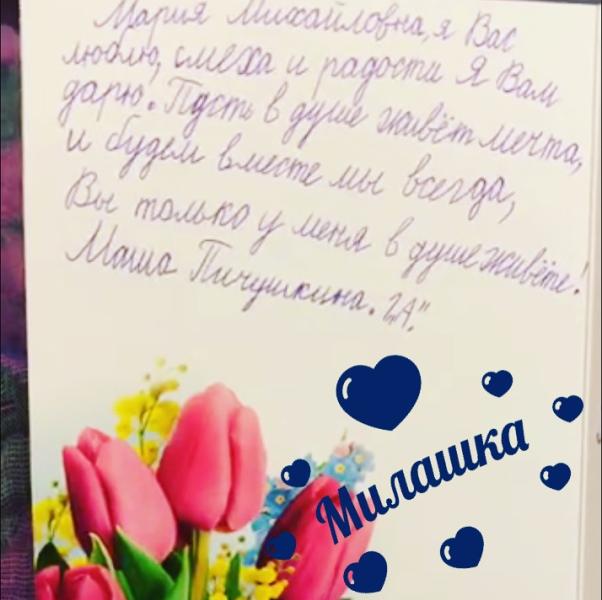 Мария Михайловна, я Вас
люблю, смеха и радости я Вам
дарю. Пусть в душе живёт мечта,
и будем вместе мы всегда,
Вы только у меня в душе живёте!
Маша Пичушкина. 2„А".
Милашка